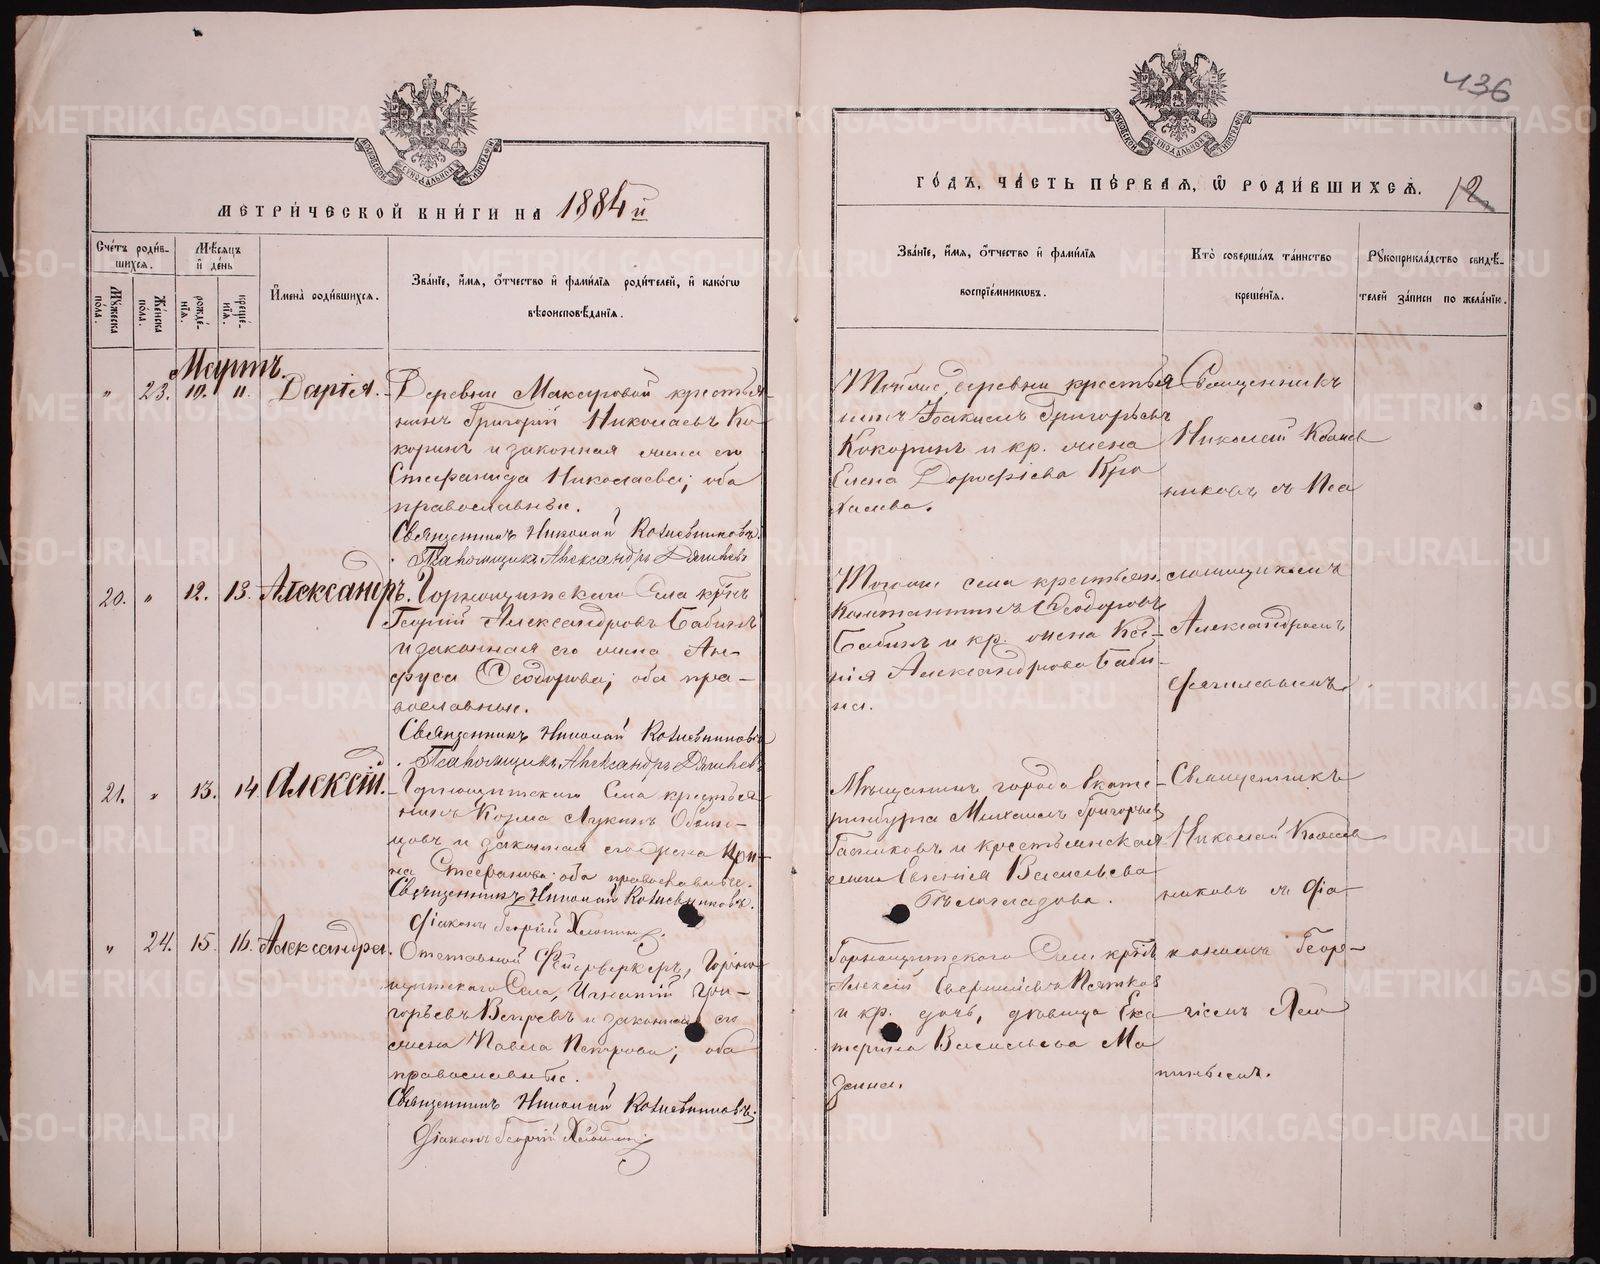 436
МЕТРИ́ЧЕСКОЙ КНИ́ГИ НА 1884 й
ГО́ДЪ, ЧА́СТЬ ПЕ́РВАЯ, Ѡ РОДИ́ВШИХСЯ. 12
Сче́тъ роди́в-
шихся.
Мѣ́сяцъ
и де́нь
Му́жеска по́ла.
Же́нска по́ла.
рожде́-
нїя.
креще́-
нїя.
И҆мена̀ роди́вшихся.
Зва́нїе, и҆́мя, ѻ҆́тчество и҆ фами́лїя роди́телей, и҆ како́гѡ
вѣроисповѣ́данїя.
Зва́нїе, и҆́мя, ѻ҆́тчество и҆ фами́лїя
воспрїе́мникѡвъ.
Кто̀ соверша́лъ та́инство
креще́нїя.
Рꙋкоприкла́дство свидѣ́-
телей за́писи по жела́нїю.
Мартъ.
" 23. 10. 11. Дарія.
Деревни Макаровой крестья-
нинъ Григорій Николаевъ Ко-
коринъ и законная жена его
Стефанида Николаева; оба
православные.
Священникъ Николай Кожевниковъ.
Псаломщикъ Александръ
Тойже деревни крестья
нинъ Іоакимъ Григорьевъ
Кокоринъ и кр. жена
Елена Дорофѣева
Священникъ
Николай Кожев
никовъ съ Пса
20. " 12. 13. Александръ.
Горнощитскаго Села кр-нъ
Георгій Александровъ Бабинъ
и законная его жена Ан-
фуса Ѳеодорова; оба пра-
вославные.
Священникъ Николай Кожевниковъ
Псаломщикъ Александръ
Тогоже села крестьян.
Константинъ Ѳеодоровъ
Бабинъ и кр. жена Ксе-
нія Александрова Баби-
на.
ломщикомъ
Александромъ
21. " 13. 14. Алексій.
Горнощитскаго Села крестья
нинъ Козма Лукинъ
и законная его жена Ири-
на Стефанова оба православные.
Священникъ Николай Кожевниковъ.
Діаконъ Георгій
Мѣщанинъ города Екате-
ринбурга Михаилъ Григорьевъ
и крестьянская
Евгенія Васильева
Священникъ
Николай Кожев
никовъ съ Діа
" 24. 15. 16. Александра.
Отставной Фейерверкеръ, Горно
щитскаго Села, Игнатій Гри-
горьевъ Вепревъ и законная его
жена Павла Петрова; оба
православные.
Священникъ Николай Кожевниковъ.
Діаконъ Георгій
Горнощитскаго Села кр-нъ
Алексій
и кр. дочь, дѣвица Ека
терина Васильева Ма
зина.
кономъ Геор-
гіемъ